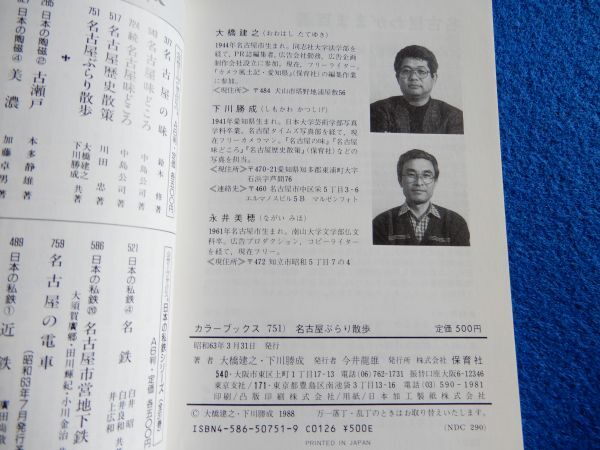 大橋建之（おおはし たてゆき）
1944年名古屋市生まれ。同志社大学法学部を
経て、PR誌編集者、広告会社勤務、広告企画
制作会社設立に参加。現在、フリーライター。
「カメラ風土記・愛知県」（保育社）の編集作業
に参加。
〈現住所〉〒484 犬山市塔野地浦屋敷56
下川勝成（しもかわ かつしげ）
1941年愛知県生まれ。日本大学芸術学部写真
学科卒業。名古屋タイムズ写真部を経て、現
在フリーカメラマン。「名古屋の味」「名古屋
味どころ」「名古屋歴史散策」（保育社）などの
写真を担当。
〈現住所〉〒470-21愛知県知多郡東浦町大字
石浜字芦間76
〈連絡先〉〒460 名古屋市中区栄5丁目3-6
エルマノスビル5B マルゼンフォト
永井美穂（ながい みほ）
1961年名古屋市生まれ。南山大学文学部仏文
科卒。広告プロダクション、コピーライター
を経て、現在フリー。
〈現住所〉〒472 知立市昭和5丁目7の4
カラーブックス 751) 名古屋ぶらり散歩 定価 500円
昭和63年3月31日 発行
著者 大橋建之・下川勝成 発行者 今井龍雄 発行所 株式会社 保育社
540・大阪市東区上町1丁目17-13 電話 (06) 762-1731 振替口座大阪
東京支社／171・東京都豊島区南池袋3丁目 電話 (03) 590-1981
印刷／凸版印刷株式会社／用紙／日本加工製紙株式会社
© 大橋建之・下川勝成 1988 万一落丁・乱丁のときはお取り替えいたします。
ISBN4-586-50751-9 C0126 ¥500E
(NDC 290)
PRINTED IN JAPAN
377 名古屋の味 鈴木修著
名古屋味どころ 中島公司著
続名古屋味どころ 中島公司著
517 名古屋歴史散策 川田忠著
751 名古屋ぶらり散歩 大橋建之 下川勝成 共著
日本の陶磁② 古瀬戸 本多静雄著
日本の陶磁④ 美濃 加藤卓男著
日本の私鉄シリーズ
A6判・定価 各五〇〇円
521 日本の私鉄④ 名鉄 白井昭 白井良和 井上広和 共著
586 日本の私鉄⑳ 名古屋市営地下鉄
759 名古屋の電車 （昭和63年7月刊）
489 日本の私鉄① 近鉄